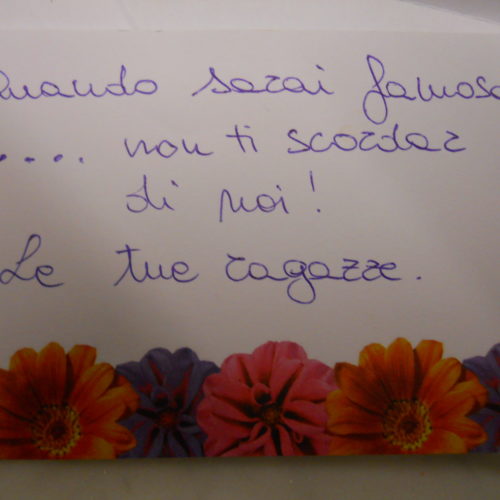 Quando sarai famosa
.... non ti scordar
di noi!
Le tue ragazze.